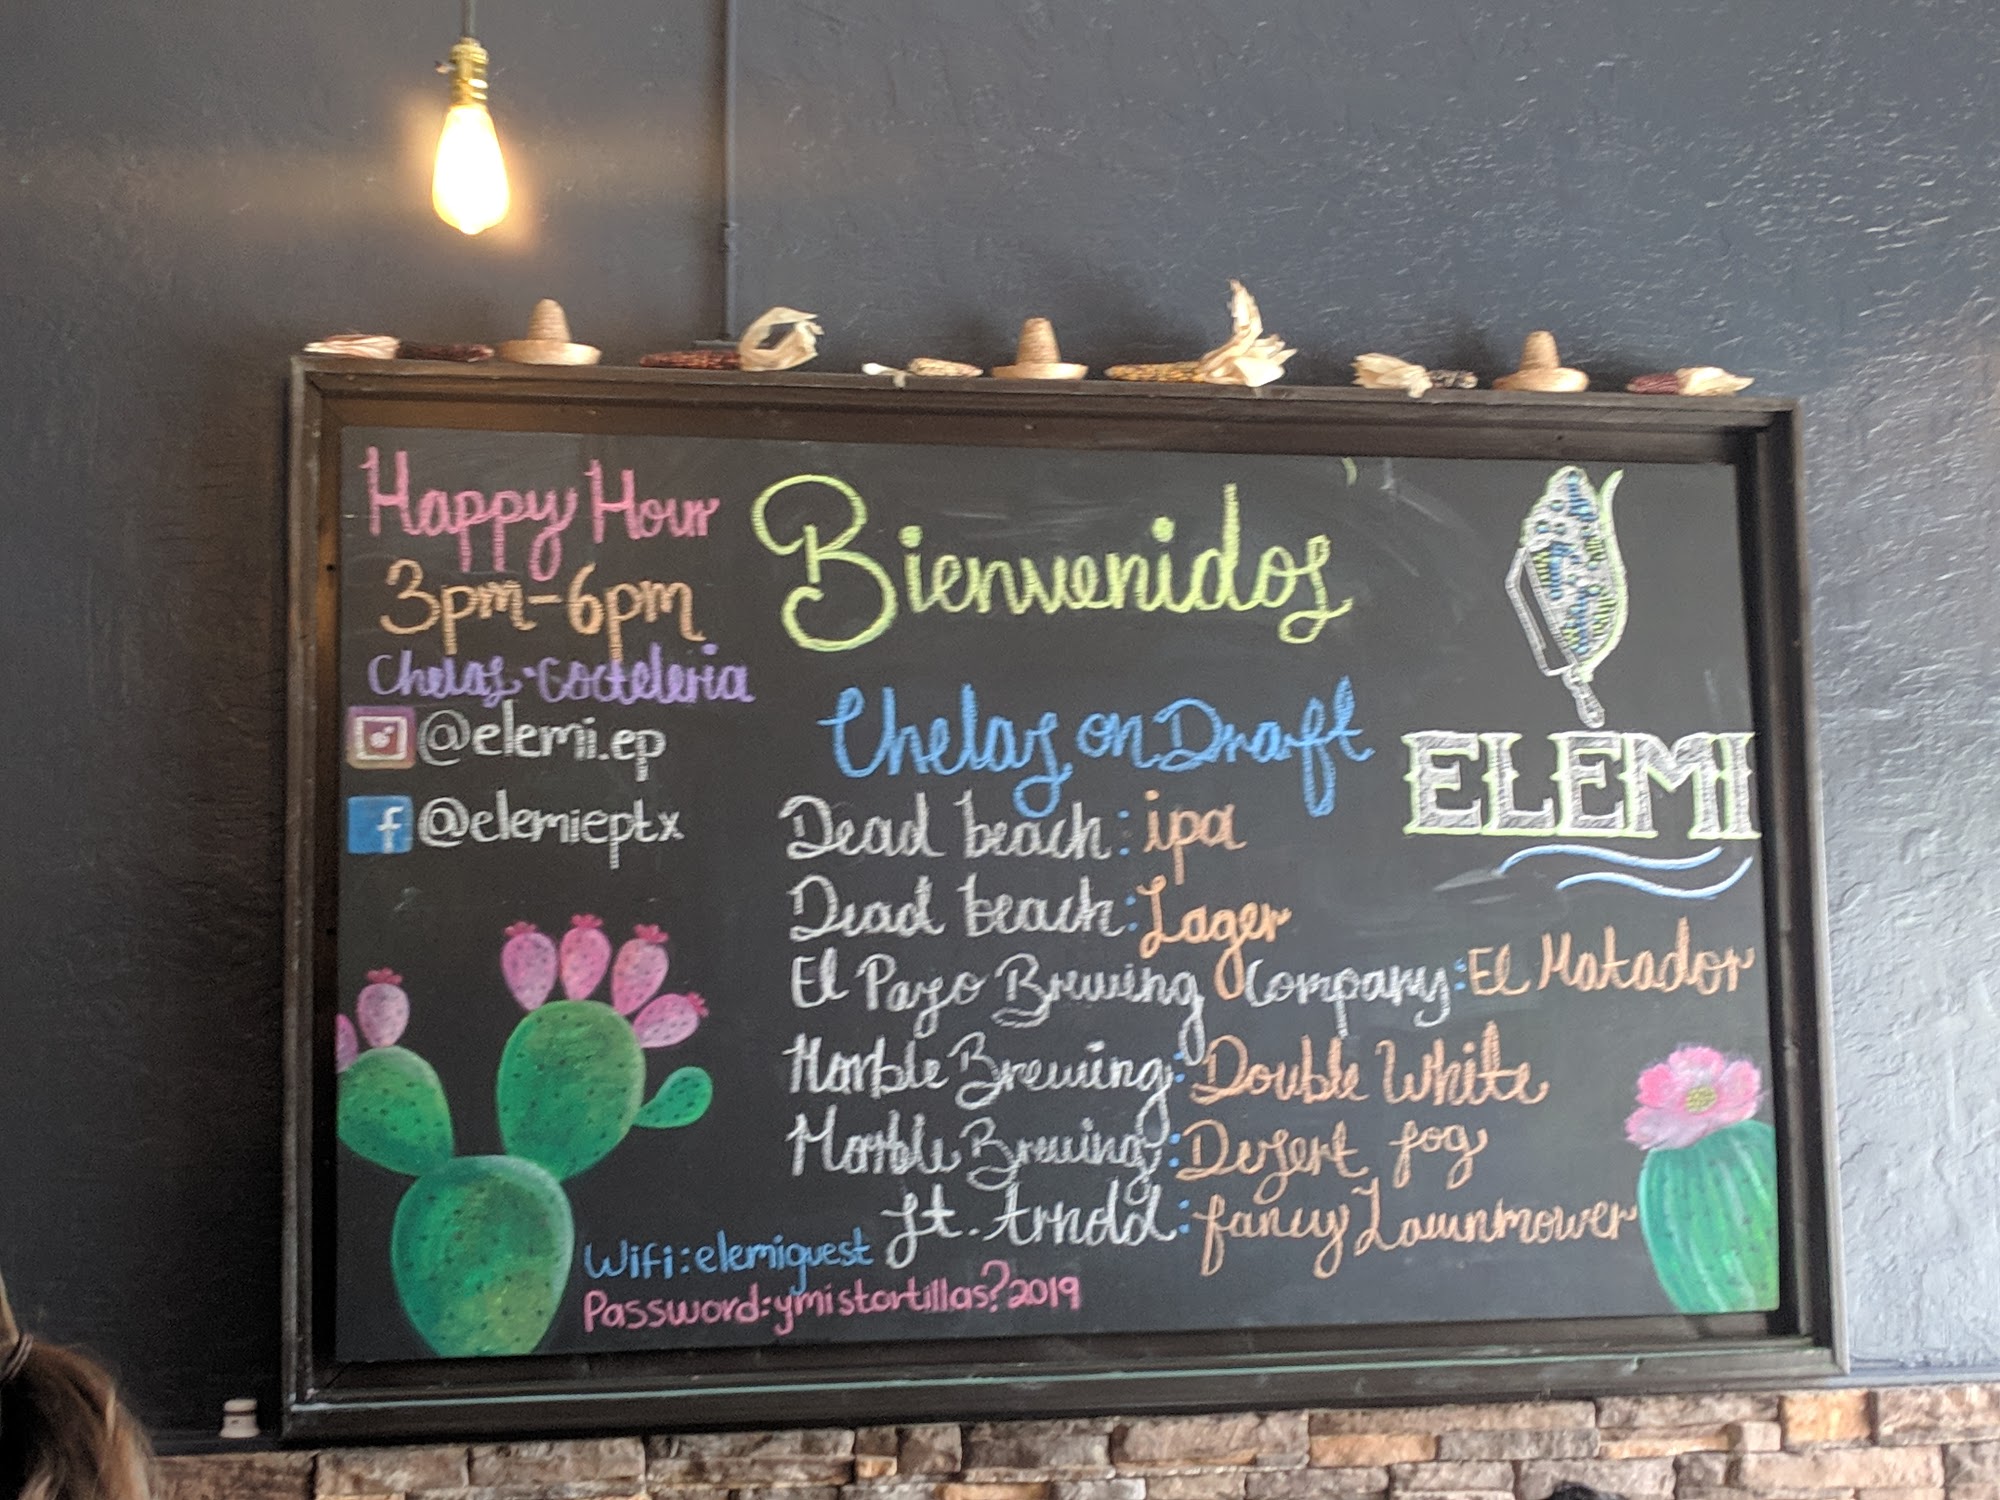 Happy Hour
3pm-6pm
Chelas · Cocteleria
@elemi.ep
f @elemieptx
Bienvenidos
Chelas on Draft
Dead beach: ipa
Dead beach: Lager
El Payo Brewing Company: El Matador
Marble Brewing: Double White
Marble Brewing: Desert fog
ft. Arnold: fancy Lawnmower
Wifi: elemiguest
Password: ymistortillas?2019
ELEMI